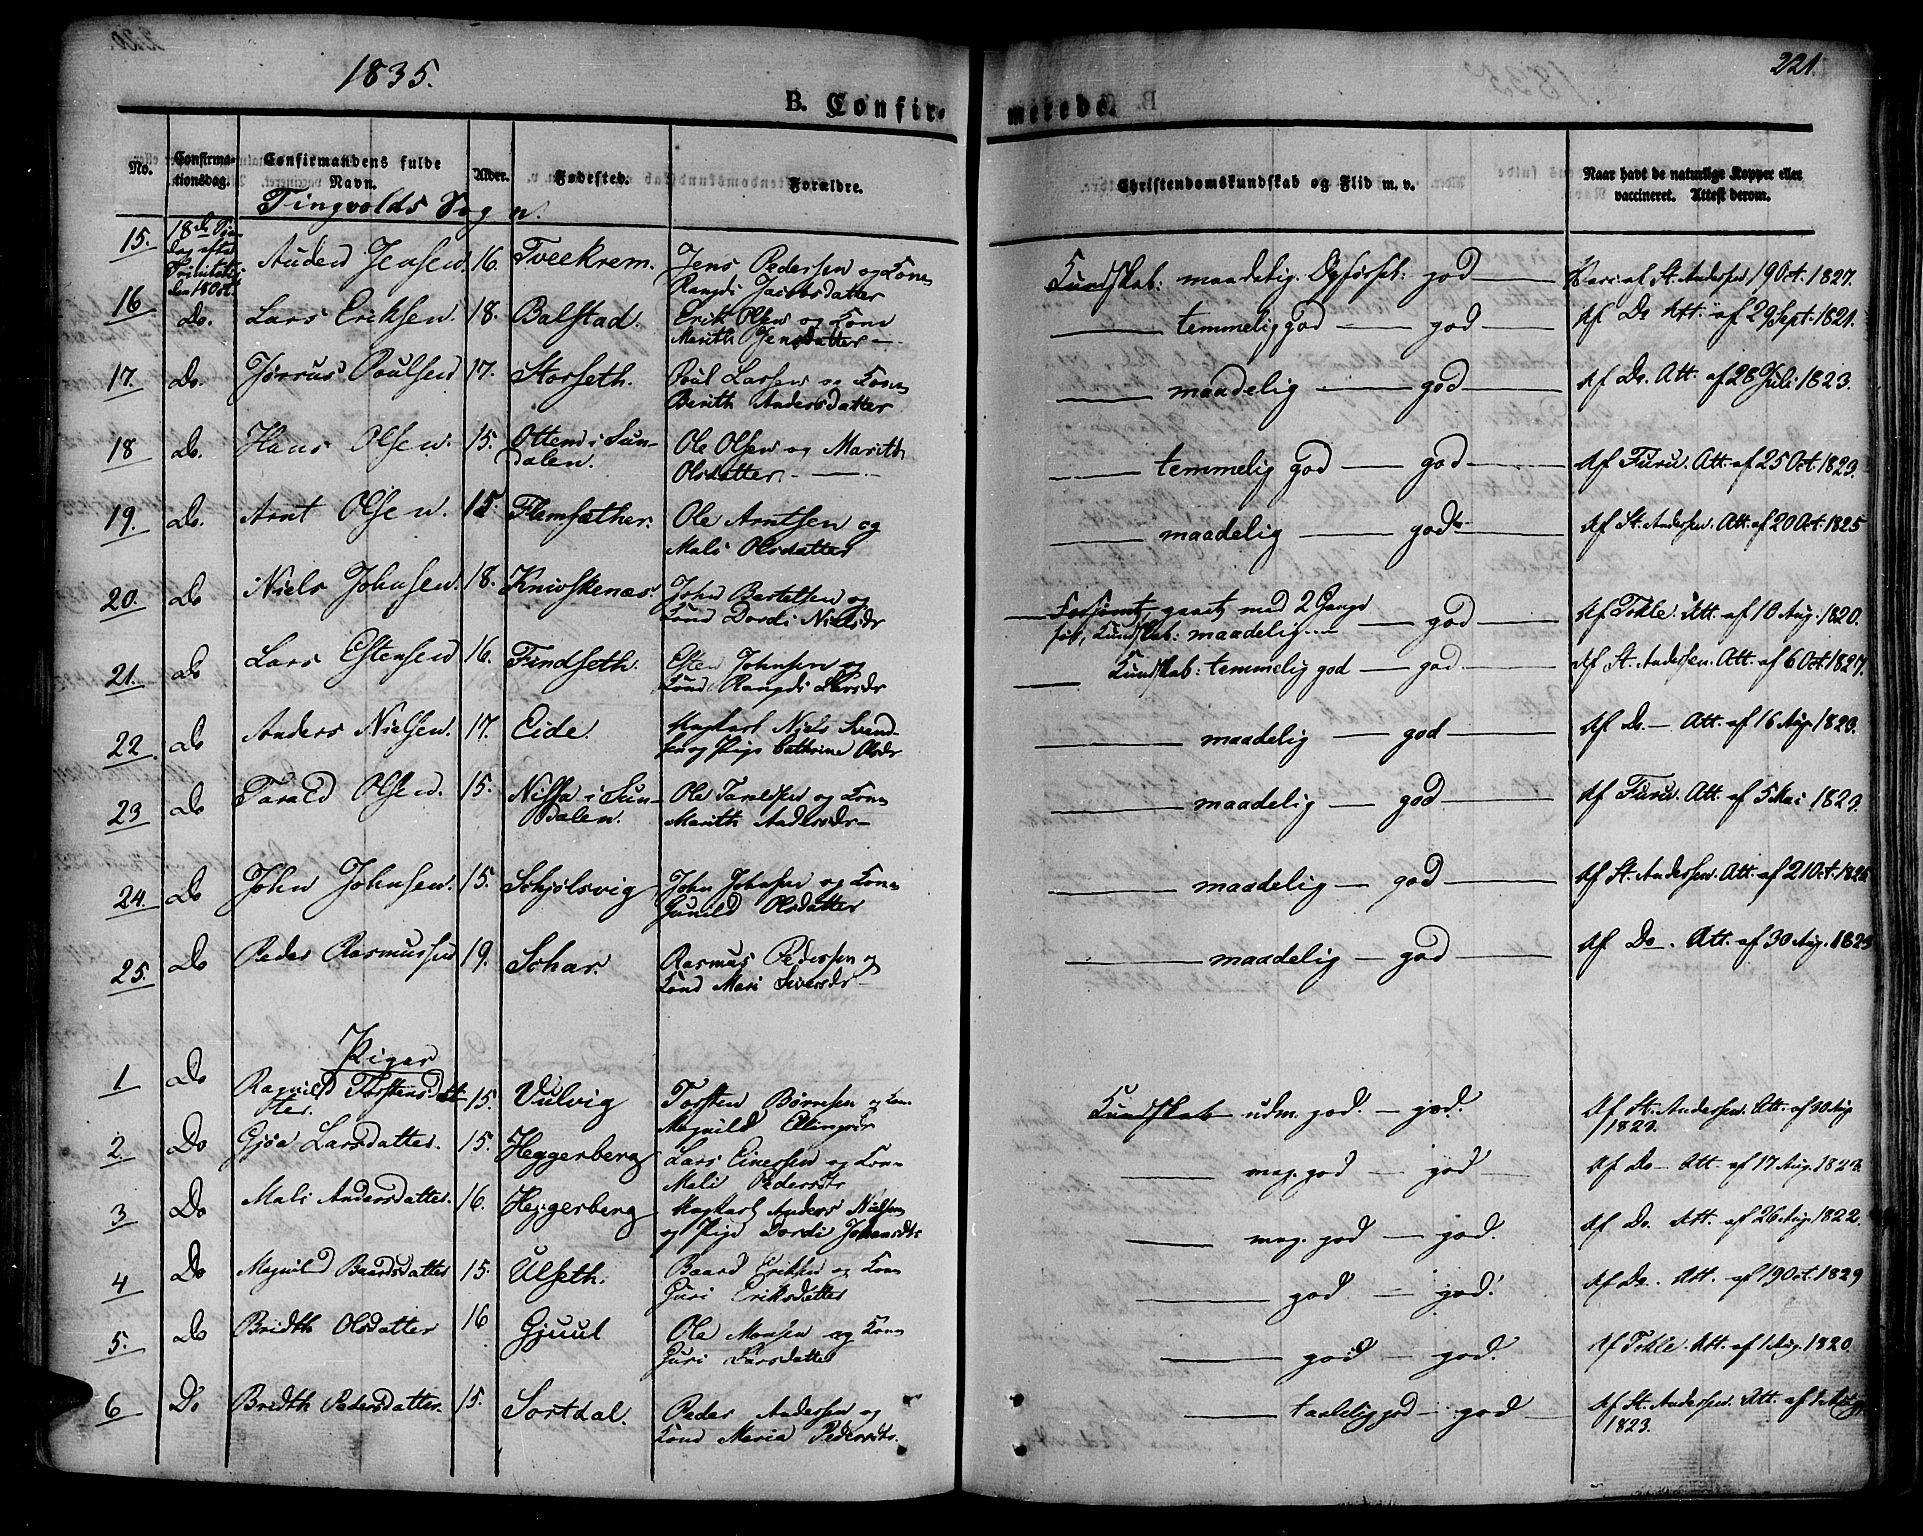 1835.
221.
B. Confir-
merede.
No.
Confirma-
tionsdag.
Confirmandens fulde
Navn.
Alder.
Fødested.
Forældre.
Christendomskundskab og Flid m. v.
Naar havt de naturlige Kopper eller
vaccineret. Attest derom.
Tingvolds Sogn.
15. 18de Søn- Auden Jensen 16. Tveekrem. Jens Pedersen og Kone Kundskab: maadelig. Opførsel: god Vacc. af St. Anderssen 19 Oct. 1827.
dag efter
Trinitatis
den 18 Oct. Rangdi Jacobsdatter
16 Do. Lars Eriksen. 18. Balstad. Erik Olsen og Kone temmelig god — god Af Do Att. af 29 Sept. 1821.
Marith Jensdatter
17. Do. Poulsen 17. Storseth. Poul Larsen og Kone maadelig — god Af Do. Att. af 28 Juli 1823.
Berith Andersdatter
18 Do. Hans Olsen. 15. Ottem i Sun- Ole Olsen og Marith temmelig god — god Af Furu. Att. af 25 Oct. 1823.
dalen. Olsdatter.
19. Do. Arnt Olsen. 15. Flemsæther. Ole Arntsen og maadelig — god Af St. Anderssen. Att. af 20 Oct. 1825
Mali Olsdatter
20. Do Niels Johnsen. 18. Knivskenæs. John Bertelsen og gaaet med 2 Gange — god Af Tokle. Att. af 10 Aug. 1820.
Kone Dordi Nielsdr før, Kundskab: maadelig
21. Do Lars Estensen 16. Findseth. Esten Johnsen og Kundskab: temmelig god — god Af St. Anderssen. Att. af 6 Oct. 1827.
Kone Rangdi Larsdr
22 Do Anders Nielsen. 17. Eide. Ungkarl Niels Svend- maadelig — god Af Do — Att. af 16 Aug. 1823.
sen og Pige Cathrine Olsdr
23 Do Tarald Olsen. 15. Nissa i Sun- Ole Taraldsen og Kone maadelig — god Af Furu. Att. af 5 Mai 1823.
dalen. Marith Andersdr
24. Do John Johnsen. 15. Schjølsvig John Johnsen og Kone maadelig — god Af St. Anderssen. Att. af 21 Oct. 1825
Gunild Olsdatter
25. Do Peder Rasmussen 19. Schar. Rasmus Pedersen og maadelig — god Af Do. Att. af 30 Aug. 1823
Kone Mari Siversdr
Piger
1 Do Ragnild Torstensdat- 15. Vulvig Torsten Børresen og Kone Kundskab udm. god. — god. Af St. Anderssen. Att. af 30 Aug
ter. Magnild Ellingsdr 1823.
2. Do Gjøa Larsdatter. 15. Heggerberg Lars Einersen og Kone meg. god — god Af Do — Att. af 17 Aug. 1823
Mali Pedersdtr
3 Do Mali Andersdatter. 16. Heggerberg Ungkarl Anders Nielsen meg. god — god. Af Do. Att. af 26 Aug. 1822.
og Pige Dordi Johansdtr
4 Do Magnild Baardsdatter 15. Ulseth. Baard Eriksen og Kone god — god. Af Do. Att. af 19 Oct. 1829
Guri Eriksdatter
5. Do Bredth Olsdatter 16 Gjuul Ole Monsen og Kone god — god. Af Tokle. Att. af 1 Aug. 1820
Guri Larsdatter
6 Do Bredth Pedersdatter. 15. Sortdal. Peder Andersen og taalelig god — god Af St. Anderssen. Att. af 1 Aug
Kone Maria Pedersdtr. 1823.